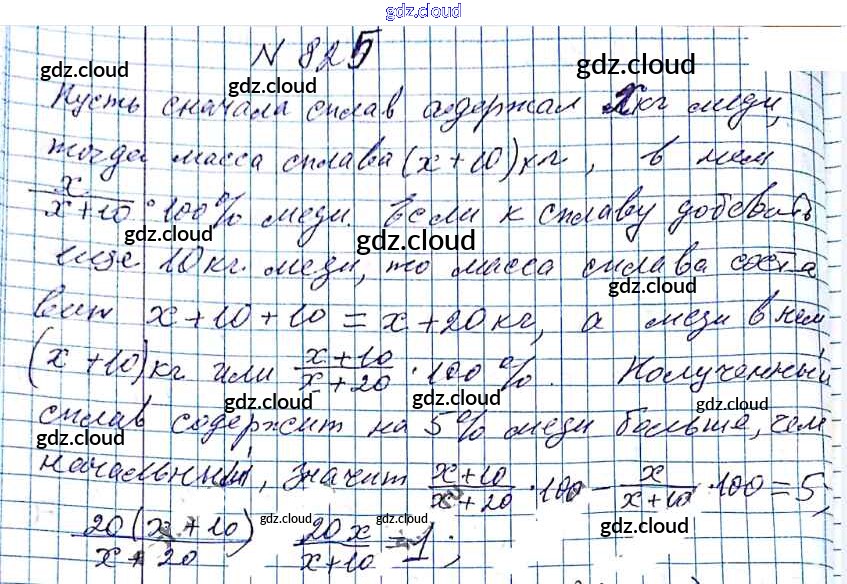 gdz.cloud
N 825
gdz.cloud gdz.cloud
Пусть сначала сплав содержал x кг меди,
gdz.cloud
тогда масса сплава (x+10) кг, в нем
gdz.cloud gdz.cloud
x/(x+10) · 100% меди. Если к сплаву добавить
gdz.cloud gdz.cloud
еще 10 кг. меди, то масса сплава соста
gdz.cloud
вит x+10+10 = x+20 кг, а меди в нем
(x+10) кг или (x+10)/(x+20) · 100 %. Полученный
gdz.cloud gdz.cloud
сплав содержит на 5% меди больше, чем
gdz.cloud gdz.cloud
начальный, значит (x+10)/(x+20) · 100 - x/(x+10) · 100 = 5,
gdz.cloud gdz.cloud gdz.cloud gdz.cloud
20(x+10)/(x+20) 20x/(x+10) = 1;